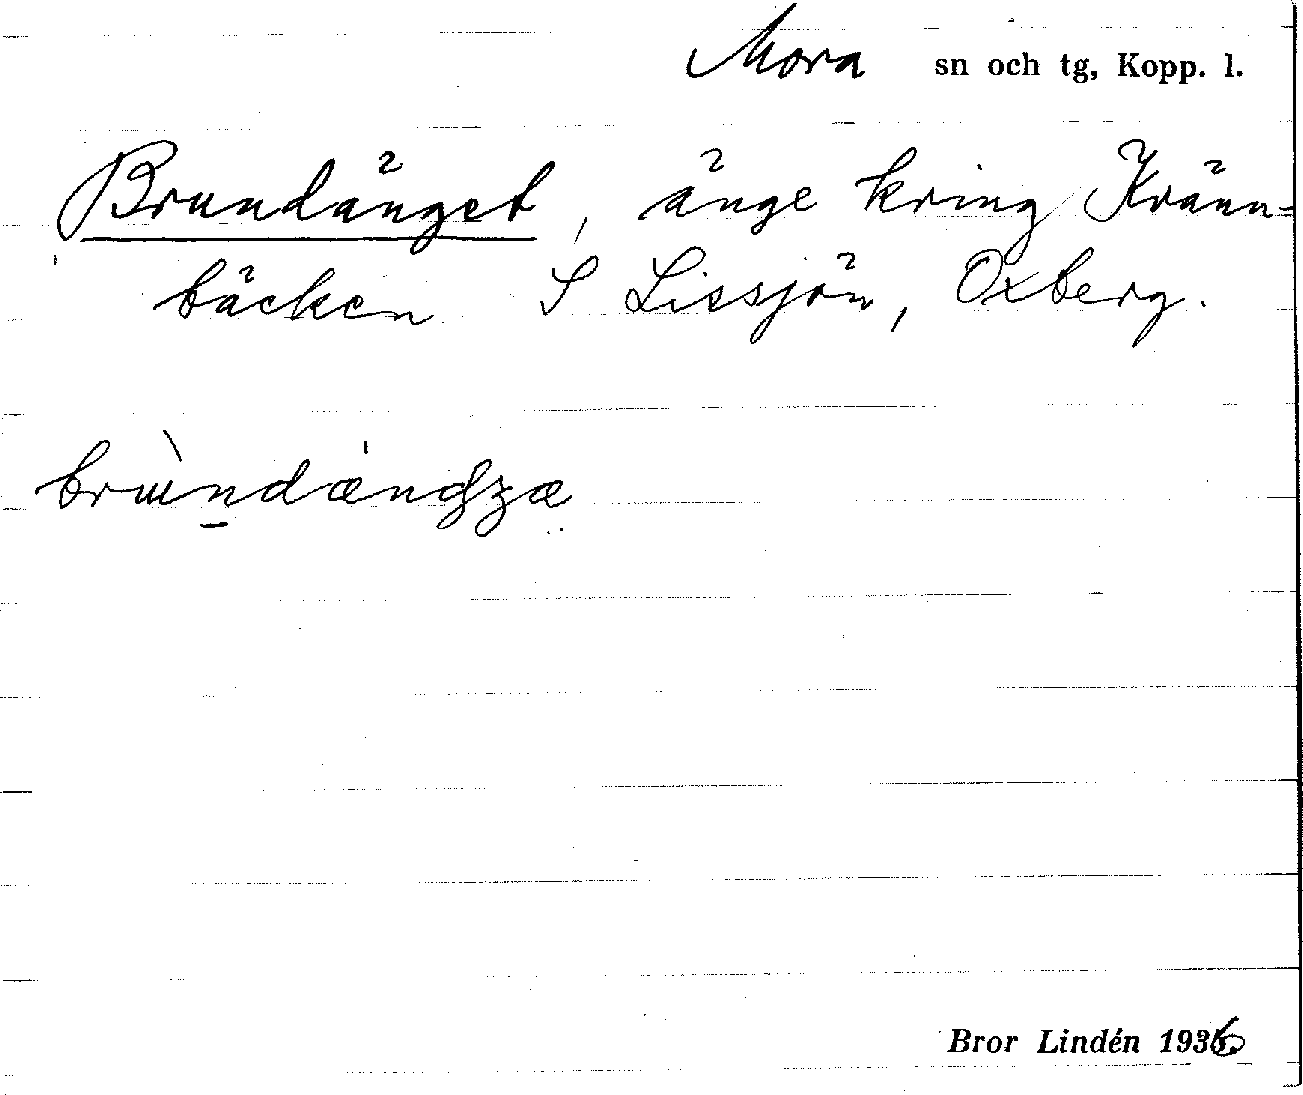 Mora sn och tg, Kopp. l.
Brundänget, änge kring Kränn-
bäcken S Lissjön, Oxberg.
Bror Lindén 1936.